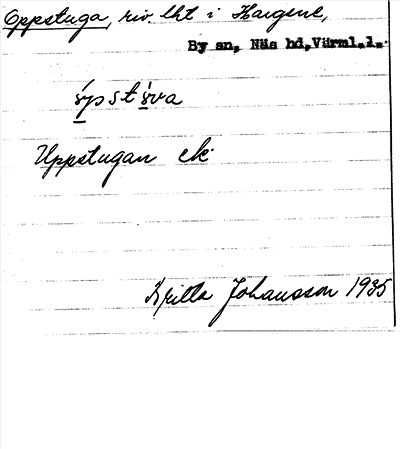 Oppstuga, riv. lht i Hargene,
By sn, Näs hd, Värml.l.
ýpstýva
Uppstugan ek.
Britta Johansson 1935